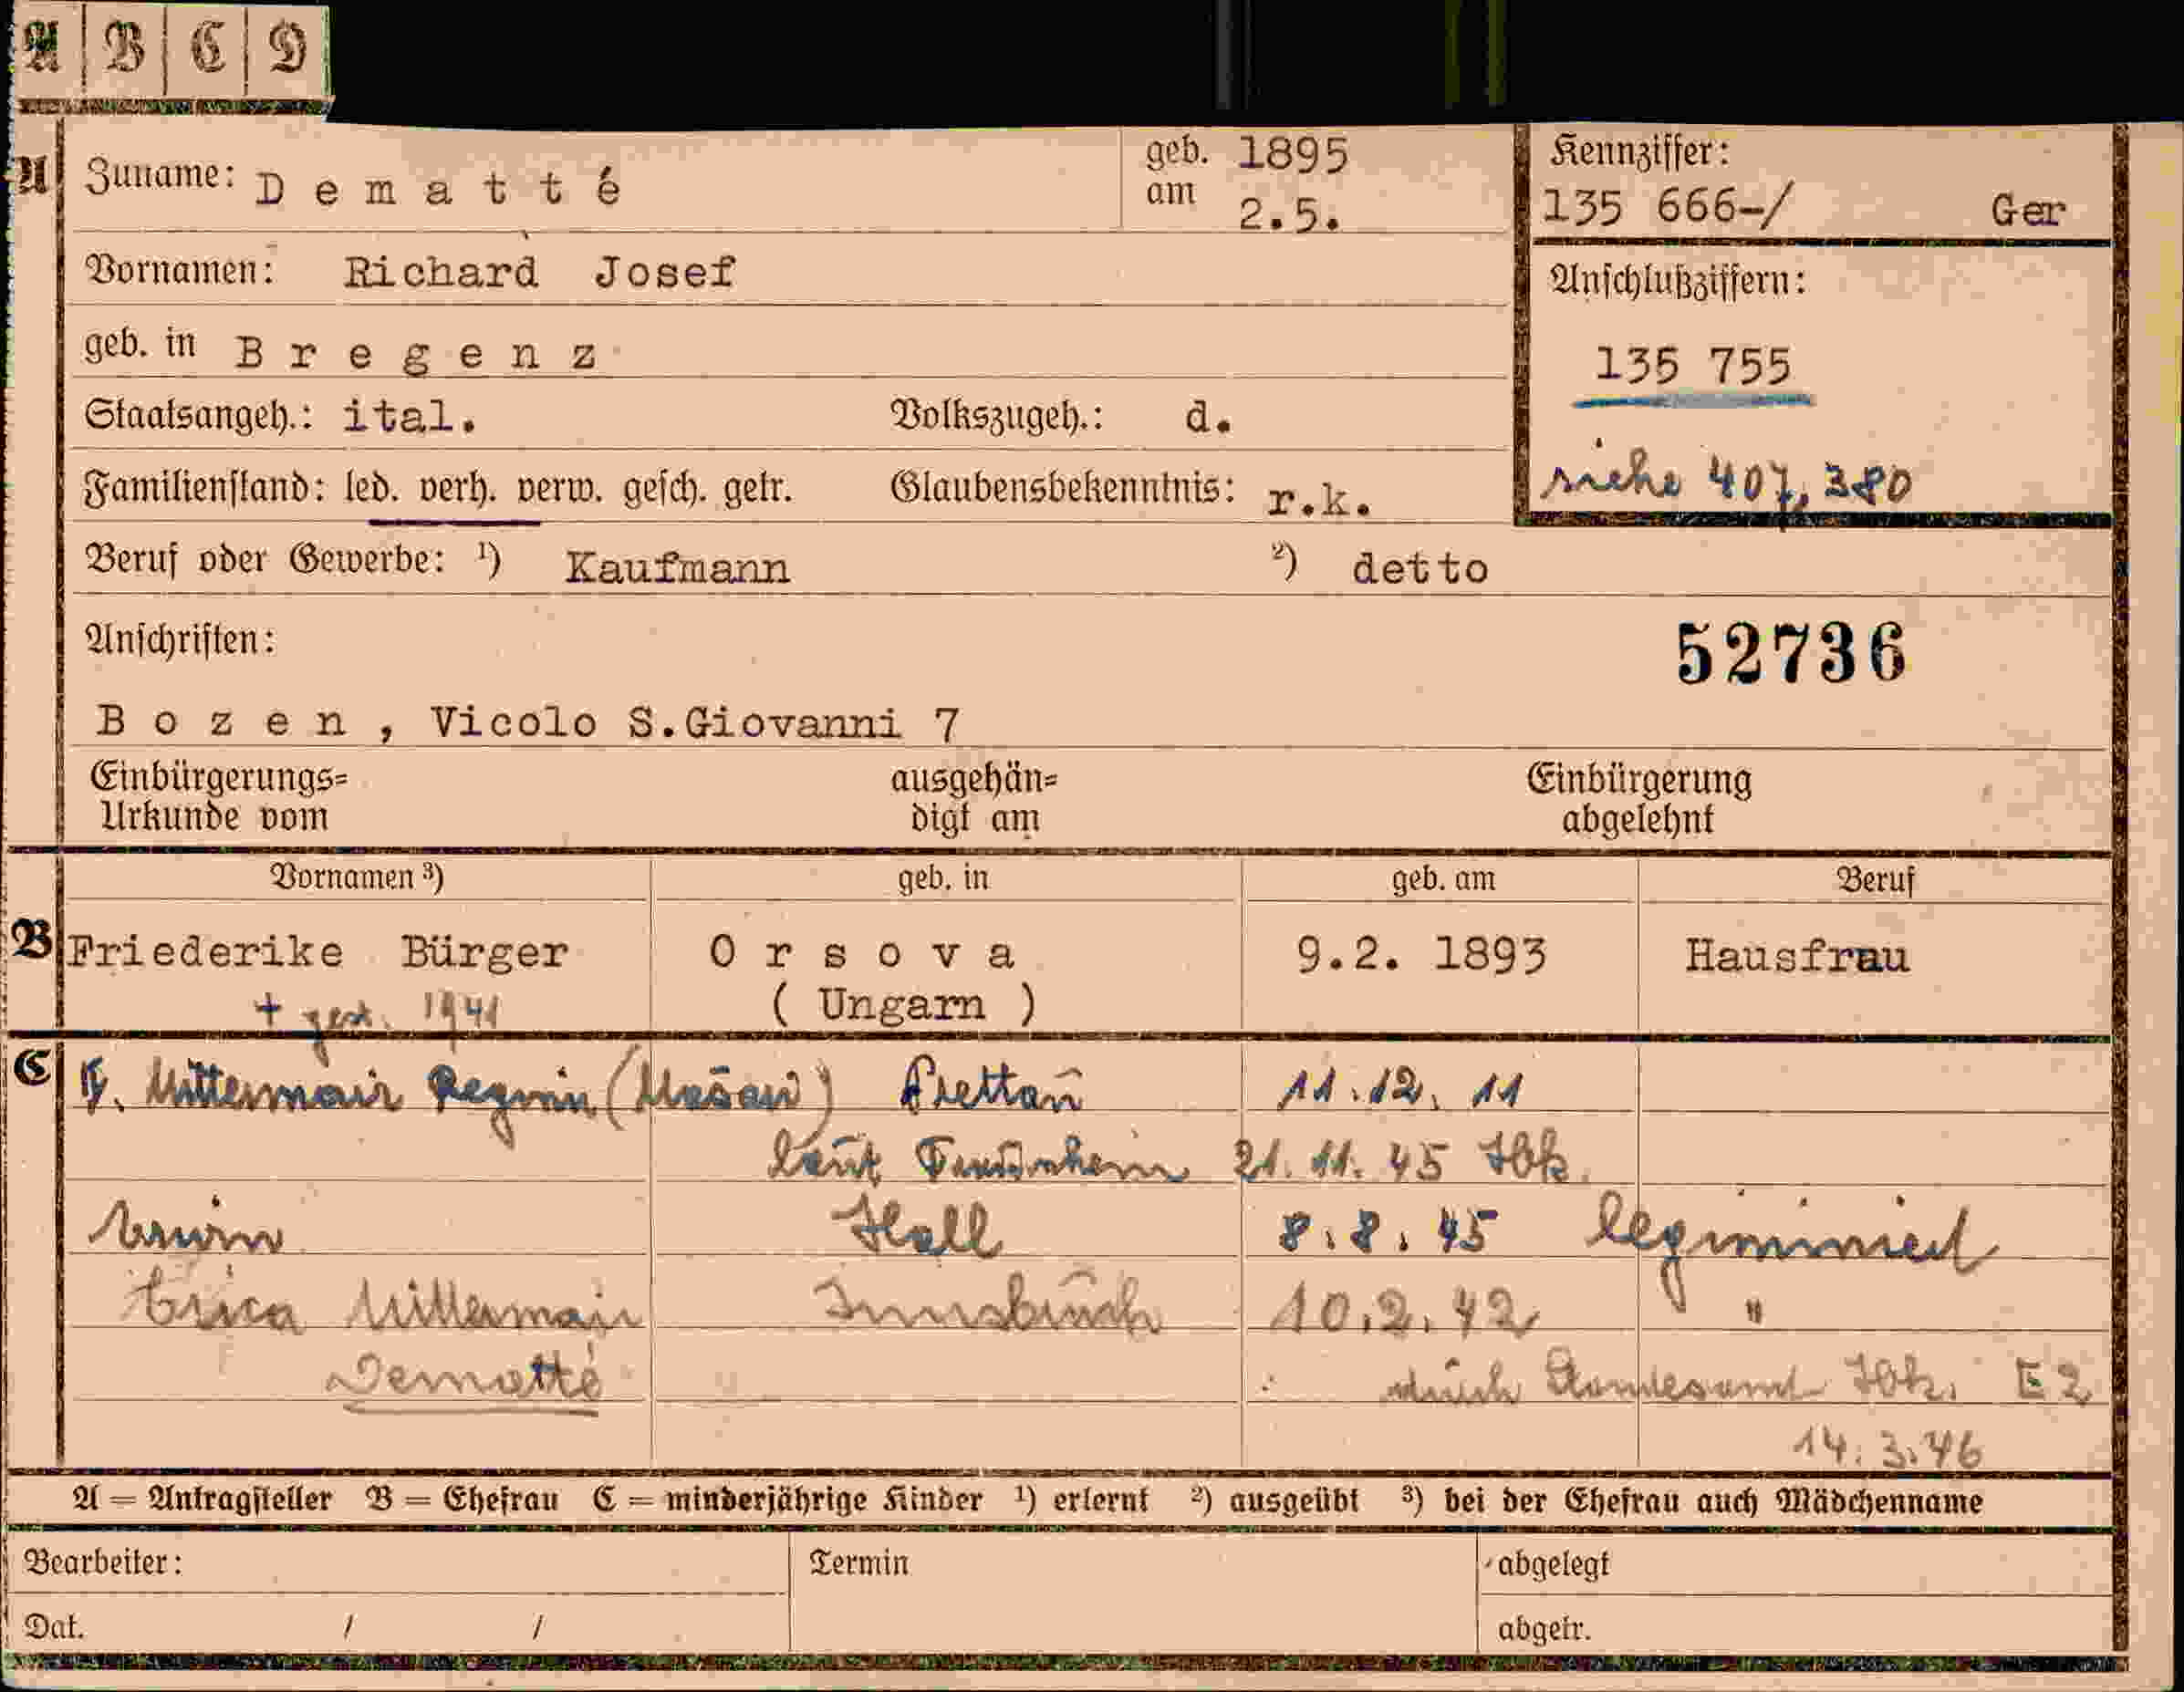 A B C D
A Zuname: Dematté geb. am 1895 2.5. Kennziffer: 135 666-/ Ger
Vornamen: Richard Josef Anschlußziffern:
geb. in Bregenz 135 755
Staatsangeh.: ital. Volkszugeh.: d.
Familienstand: led. verh. verw. gesch. getr. Glaubensbekenntnis: r.k. siehe 407,380
Beruf oder Gewerbe: 1) Kaufmann 2) detto
Anschriften: 52736
Bozen, Vicolo S.Giovanni 7
Einbürgerungs= ausgehän= Einbürgerung
Urkunde vom digt am abgelehnt
Vornamen 3) geb. in geb. am Beruf
B Friederike Bürger Orsova 9.2. 1893 Hausfrau
+ gest. 1941 ( Ungarn )
C Mittermair Prettau 11.12. 11
laut 21.11.45 Ibk.
Erwin Hall 8.8.45
Erica Mittermair Innsbruck 10.2.42 "
Dematté durch Standesamt Ibk. E2
14.3.46
A = Antragsteller B = Ehefrau C = minderjährige Kinder 1) erlernt 2) ausgeübt 3) bei der Ehefrau auch Mädchenname
Bearbeiter: Termin abgelegt
Dat. / / abgetr.